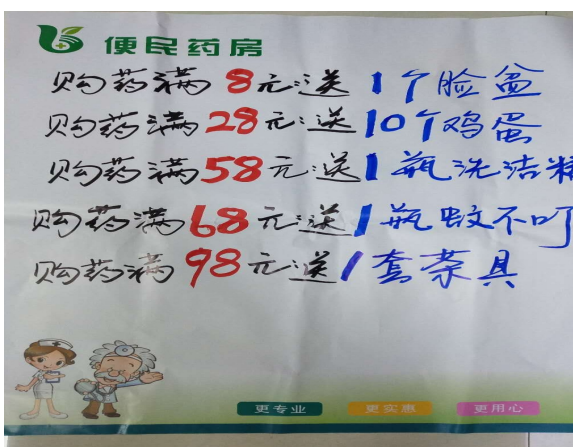 便民药房
购药满8元:送1个脸盆
购药满28元:送10个鸡蛋
购药满58元:送1瓶洗洁精
购药满68元:送1瓶蚊不叮
购药满98元:送1套茶具
更专业 更实惠 更用心